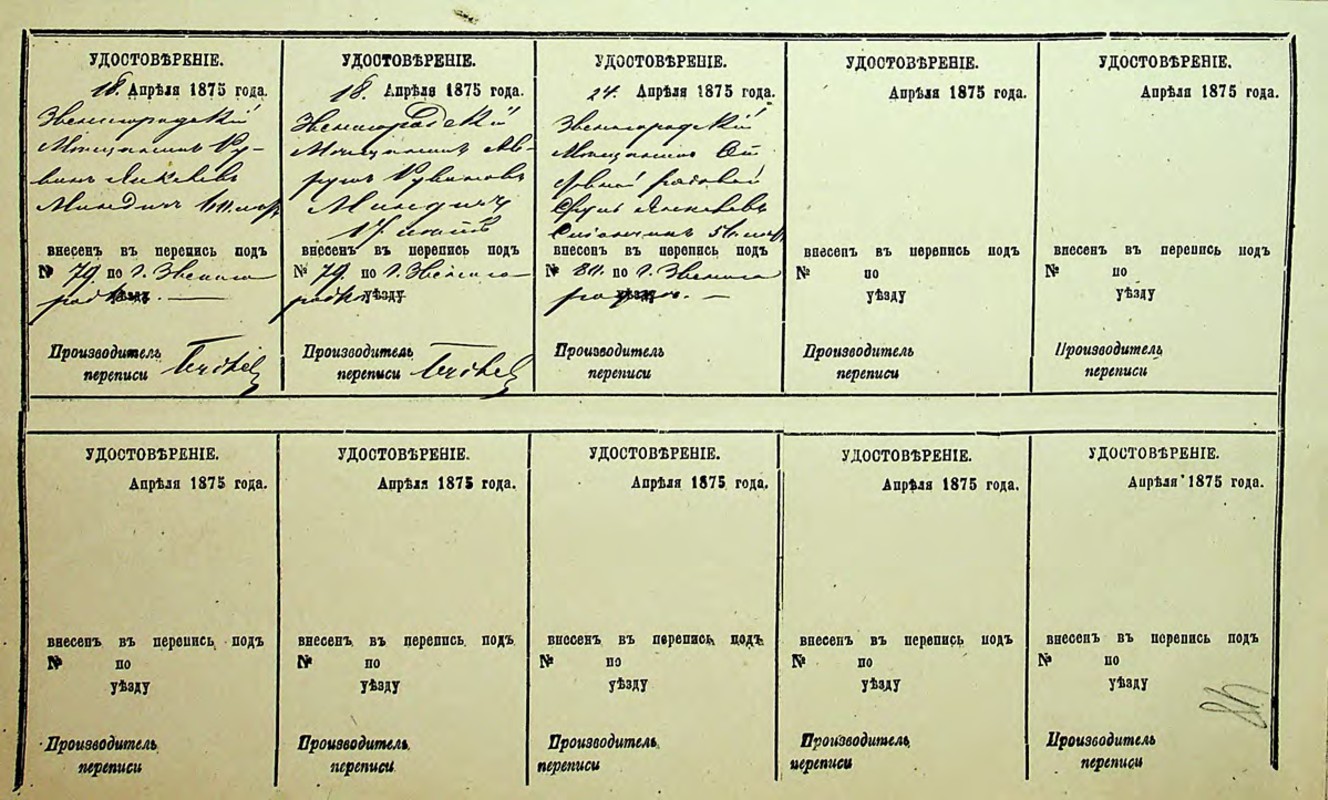 УДОСТОВѢРЕНІЕ.
18. Апрѣля 1875 года.
Звенигородскій
Мѣщанинъ Ру-
винъ Янкелевъ
Миндичъ
внесенъ въ перепись подъ
№ 79 по г. Звениго
родкѣ. уѣзду
Производитель
переписи
УДОСТОВѢРЕНІЕ.
18. Апрѣля 1875 года.
Звенигородскій
Мѣщанинъ Ав-
румъ Рувиновъ
Миндичъ
17 лѣтъ
внесенъ въ перепись подъ
№ 79. по г. Звениго-
родкѣ уѣзду
Производитель
переписи
УДОСТОВѢРЕНІЕ.
24. Апрѣля 1875 года.
Звенигородскій
Мѣщанинъ
рядовой
Срулъ Янкелевъ
внесенъ въ перепись подъ
№ по г. Звениго
родкѣ. уѣзду
Производитель
переписи
УДОСТОВѢРЕНІЕ.
Апрѣля 1875 года.
внесенъ въ перепись подъ
№ по
уѣзду
Производитель
переписи
УДОСТОВѢРЕНІЕ.
Апрѣля 1875 года.
внесенъ въ перепись подъ
№ по
уѣзду
Производитель
переписи
УДОСТОВѢРЕНІЕ.
Апрѣля 1875 года.
внесенъ въ перепись подъ
№ по
уѣзду
Производитель
переписи
УДОСТОВѢРЕНІЕ.
Апрѣля 1875 года.
внесенъ въ перепись подъ
№ по
уѣзду
Производитель
переписи
УДОСТОВѢРЕНІЕ.
Апрѣля 1875 года.
внесенъ въ перепись подъ
№ по
уѣзду
Производитель
переписи
УДОСТОВѢРЕНІЕ.
Апрѣля 1875 года.
внесенъ въ перепись подъ
№ по
уѣзду
Производитель
переписи
УДОСТОВѢРЕНІЕ.
Апрѣля 1875 года.
внесенъ въ перепись подъ
№ по
уѣзду
Производитель
переписи